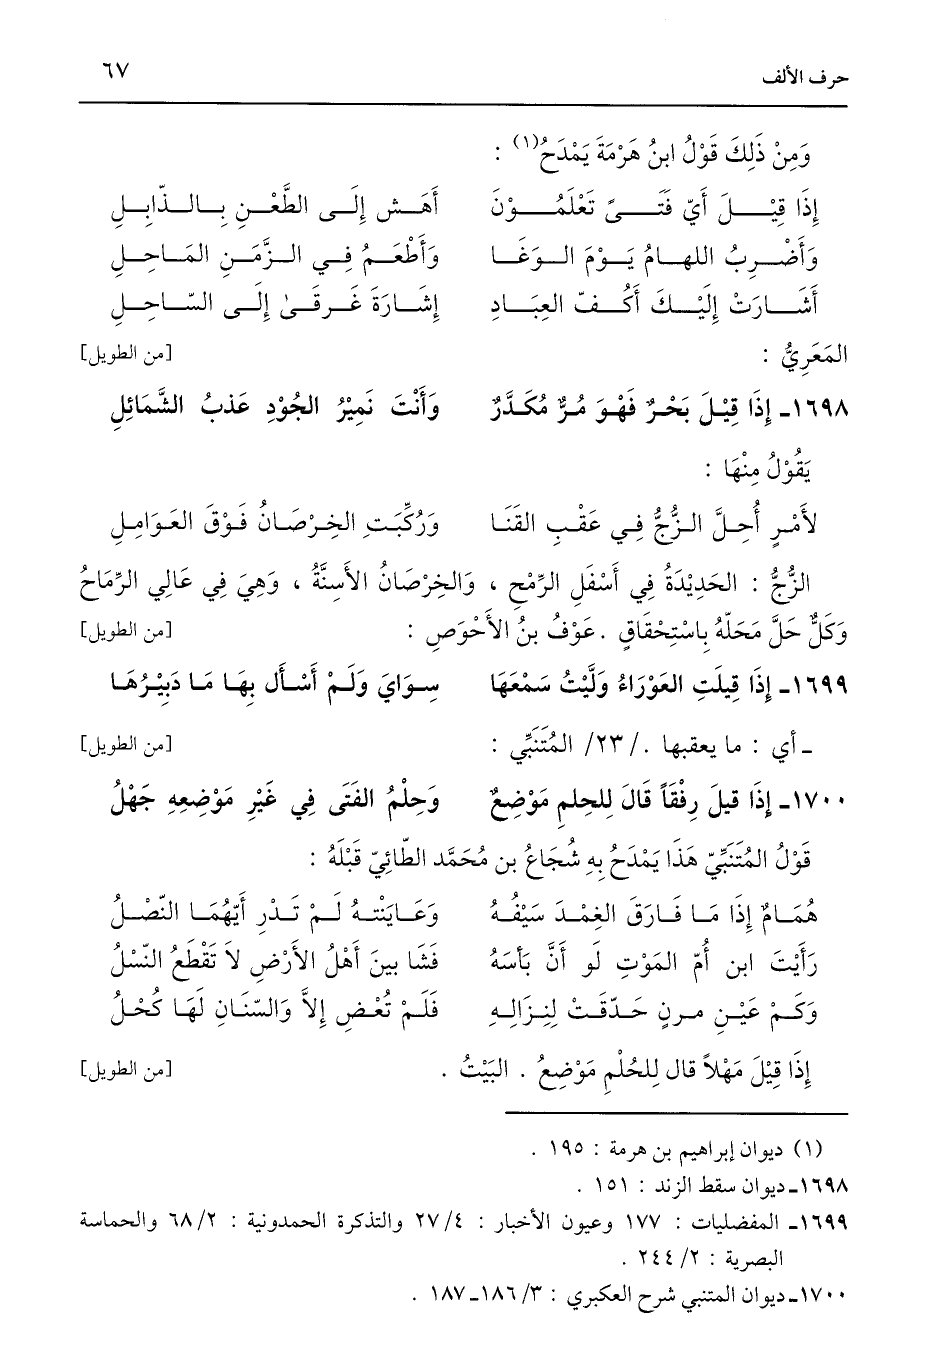 حرف الألف ٦٧
وَمِنْ ذَلِكَ قَوْلُ ابنُ هَرْمَةَ يَمْدَحُ(١) :
إِذَا قِيْلَ أَيّ فَتَىً تَعْلَمُوْنَ أَهَش إِلَى الطَّعْنِ بِالذّابِلِ
وَأَضْرِبُ اللهامُ يَوْمَ الوَغَا وَأَطْعَمُ فِي الزَّمَنِ المَاحِلِ
أَشَارَتْ إِلَيْكَ أَكُفّ العِبَادِ إِشَارَةَ غَرقَىٰ إِلَى السّاحِلِ
المَعَرِيُّ : [من الطويل]
١٦٩٨- إِذَا قِيْلَ بَحْرٌ فَهْوَ مُرٌّ مُكَدَّرٌ وَأَنْتَ نَمِيْرُ الجُوْدِ عَذبُ الشَّمَائِلِ
يَقُوْلُ مِنْهَا :
لأَمْرٍ أُحِلَّ الزُّجُّ فِي عَقْبِ القَنَا وَرُكِّبَتِ الخِرْصَانُ فَوْقَ العَوَامِلِ
الزُّجُّ : الحَدِيْدَةُ فِي أَسْفَلِ الرّمْحِ ، وَالخِرْصَانُ الأَسِنَّةُ ، وَهِيَ فِي عَالِي الرِّمَاحُ
وَكَلٌّ حَلَّ مَحَلّهُ بِاسْتِحْقَاقٍ . عَوْفُ بنُ الأَحْوَصِ : [من الطويل]
١٦٩٩- إِذَا قِيلَتِ العَوْرَاءُ وَلَّيْتُ سَمْعَهَا سِوَايَ وَلَمْ أَسْأَل بِهَا مَا دَبِيْرُهَا
- أي : ما يعقبها . /٢٣/ المُتَنَبِّي : [من الطويل]
١٧٠٠- إِذَا قيلَ رِفْقَاً قَالَ لِلحِلمِ مَوْضِعٌ وَحِلْمُ الفَتَى فِي غَيْرِ مَوْضِعِهِ جَهْلُ
قَوْلُ المُتَنَبِّيّ هَذَا يَمْدَحُ بِهِ شُجَاعُ بن مُحَمَّد الطَّائِيّ قَبْلَهُ :
هُمَامٌ إِذَا مَا فَارَقَ الغِمْدَ سَيْفُهُ وَعَايَنْتهُ لَمْ تَدْرِ أَيّهُمَا النّصْلُ
رَأَيْتَ ابن أُمّ المَوْتِ لَو أَنَّ بَأسَهُ فَشَا بينَ أَهْلُ الأَرْضِ لاَ تَقْطَعُ النّسْلُ
وَكَمْ عَيْنِ مرنٍ حَدّقَتْ لِنِزَالِهِ فَلَمْ تُغْضِ إِلاَّ وَالسّنَانِ لَهَا كُحْلُ
إِذَا قِيْلَ مَهْلاً قال لِلحُلْمِ مَوْضِعُ . البَيْتُ . [من الطويل]
(١) ديوان إبراهيم بن هرمة : ١٩٥ .
١٦٩٨- ديوان سقط الزند : ١٥١ .
١٦٩٩- المفضليات : ١٧٧ وعيون الأخبار : ٢٧/٤ والتذكرة الحمدونية : ٦٨/٢ والحماسة
البصرية : ٢/ ٢٤٤ .
١٧٠٠- ديوان المتنبي شرح العكبري : ٣/ ١٨٦- ١٨٧ .